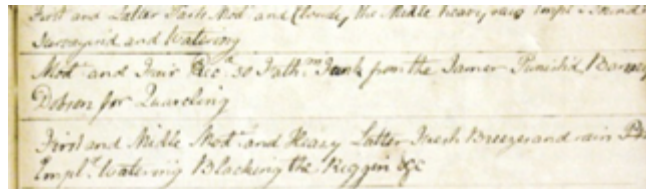 First and Latter Parts Modt and Cloudy, the Middle heavy rain Empld
Surveying and Watering
Modt and Fair Recd 30 Fathms Junk from the Tamer Punished
Dobson for Quarreling
First and Middle Modt and Heavy Latter Fresh Breezes and rain
Empld Watering Blacking the Riggin &c